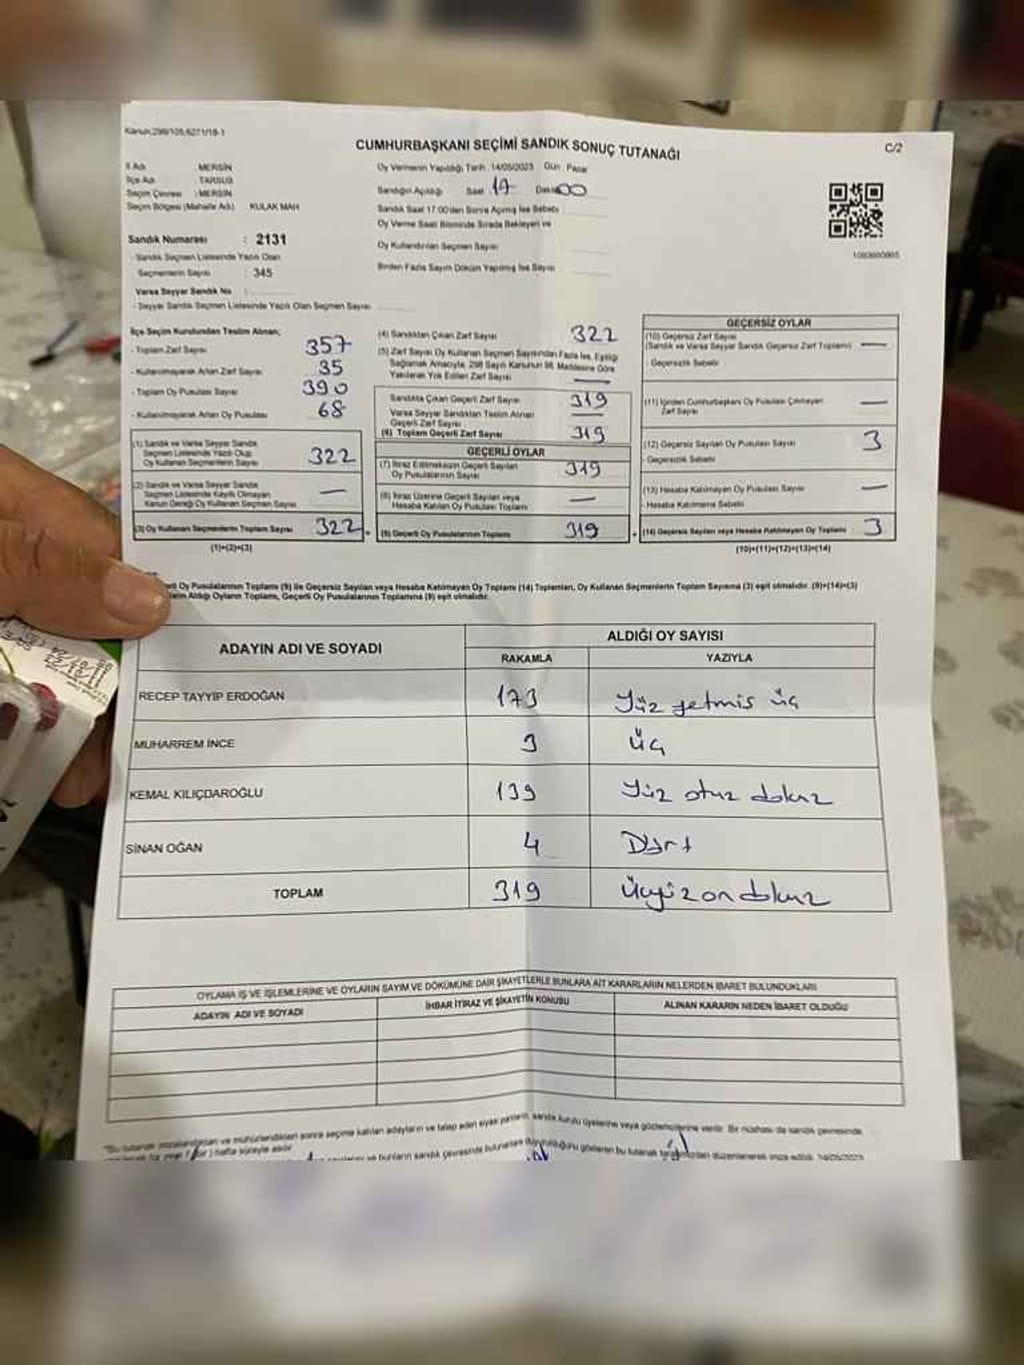 Kanun:298/105,6271/18-1
CUMHURBAŞKANI SEÇİMİ SANDIK SONUÇ TUTANAĞI
C/2
İl Adı : MERSİN
İlçe Adı : TARSUS
Seçim Çevresi : MERSİN
Seçim Bölgesi (Mahalle Adı) KULAK MAH
Oy Vermenin Yapıldığı Tarih : 14/05/2023 Gün : Pazar
Sandığın Açıldığı Saat 17 Dakika 00
Sandık Saat 17.00'den Sonra Açılmış İse Sebebi :
Oy Verme Saati Bitiminde Sırada Bekleyen ve
Oy Kullandırılan Seçmen Sayısı
Birden Fazla Sayım Döküm Yapılmış İse Sayısı
Sandık Numarası : 2131
- Sandık Seçmen Listesinde Yazılı Olan
Seçmenlerin Sayısı : 345
Varsa Seyyar Sandık No :
- Seyyar Sandık Seçmen Listesinde Yazılı Olan Seçmen Sayısı
İlçe Seçim Kurulundan Teslim Alınan;
- Toplam Zarf Sayısı 357
- Kullanılmayarak Artan Zarf Sayısı 35
- Toplam Oy Pusulası Sayısı 390
- Kullanılmayarak Artan Oy Pusulası 68
(1) Sandık ve Varsa Seyyar Sandık
Seçmen Listesinde Yazılı Olup
Oy Kullanan Seçmenlerin Sayısı 322
(2) Sandık ve Varsa Seyyar Sandık
Seçmen Listesinde Kaydı Olmayan
Kanun Gereği Oy Kullanan Seçmen Sayısı —
(3) Oy Kullanan Seçmenlerin Toplam Sayısı 322 =
(1)+(2)=(3)
(4) Sandıktan Çıkan Zarf Sayısı 322
(5) Zarf Sayısı Oy Kullanan Seçmen Sayısından Fazla İse, Eşitliği
Sağlamak Amacıyla, 298 Sayılı Kanunun 98. Maddesine Göre
Yakılarak Yok Edilen Zarf Sayısı —
Sandıkta Çıkan Geçerli Zarf Sayısı 319
Varsa Seyyar Sandıktan Teslim Alınan
Geçerli Zarf Sayısı —
(6) Toplam Geçerli Zarf Sayısı 319
GEÇERLİ OYLAR
(7) İtiraz Edilmeksizin Geçerli Sayılan
Oy Pusulalarının Sayısı 319
(8) İtiraz Üzerine Geçerli Sayılan veya
Hesaba Katılan Oy Pusulaları Toplamı —
(9) Geçerli Oy Pusulalarının Toplamı 319 +
GEÇERSİZ OYLAR
(10) Geçersiz Zarf Sayısı
(Sandık ve Varsa Seyyar Sandık Geçersiz Zarf Toplamı) —
- Geçersizlik Sebebi
(11) İçinden Cumhurbaşkanı Oy Pusulası Çıkmayan
Zarf Sayısı —
(12) Geçersiz Sayılan Oy Pusulası Sayısı 3
- Geçersizlik Sebebi
(13) Hesaba Katılmayan Oy Pusulası Sayısı —
- Hesaba Katılmama Sebebi
(14) Geçersiz Sayılan veya Hesaba Katılmayan Oy Toplamı 3
(10)+(11)+(12)+(13)=(14)
Oy Pusulalarının Toplamı (9) ile Geçersiz Sayılan veya Hesaba Katılmayan Oy Toplamı (14) Toplamları, Oy Kullanan Seçmenlerin Toplam Sayısına (3) eşit olmalıdır. (9)+(14)=(3)
Aldığı Oyların Toplamı, Geçerli Oy Pusulalarının Toplamına (9) eşit olmalıdır.
ADAYIN ADI VE SOYADI
ALDIĞI OY SAYISI
RAKAMLA YAZIYLA
RECEP TAYYİP ERDOĞAN 173 Yüz yetmis üç
MUHARREM İNCE 3 Üç
KEMAL KILIÇDAROĞLU 139 Yüz otuz dokuz
SİNAN OĞAN 4 Dört
TOPLAM 319 Üçyüz on dokuz
OYLAMA İŞ VE İŞLEMLERİNE VE OYLARIN SAYIM VE DÖKÜMÜNE DAİR ŞİKAYETLERLE BUNLARA AİT KARARLARIN NELERDEN İBARET BULUNDUKLARI
ADAYIN ADI VE SOYADI İHBAR İTİRAZ VE ŞİKAYETİN KONUSU ALINAN KARARIN NEDEN İBARET OLDUĞU